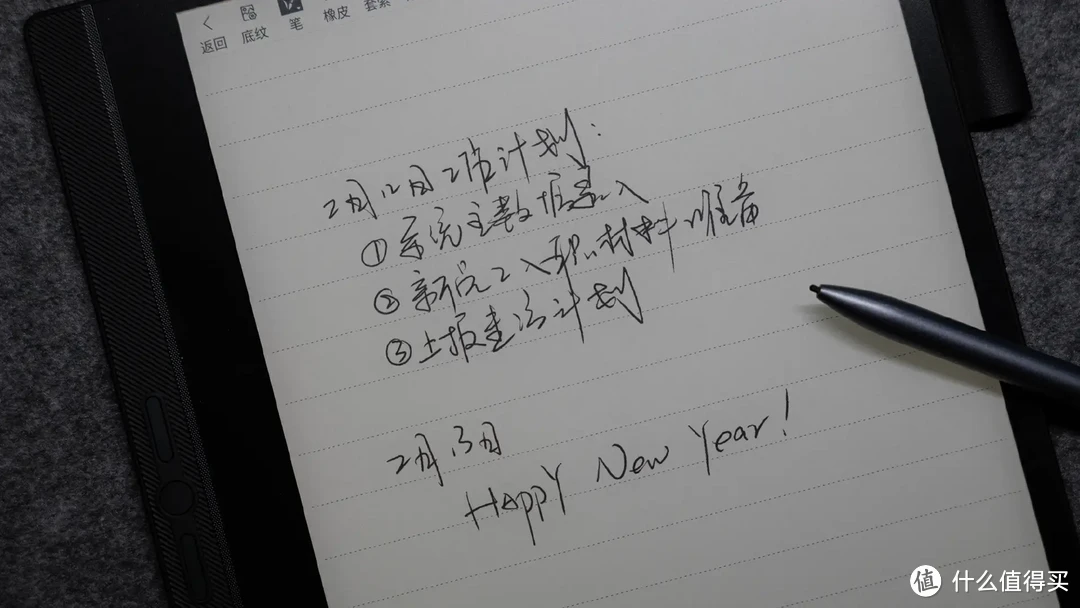 返回 底纹 笔 橡皮 套索
2月12日工作计划:
①系统主数据录入
②新员工入职材料准备
③上报计划
2月13日
Happy New Year!
值 什么值得买